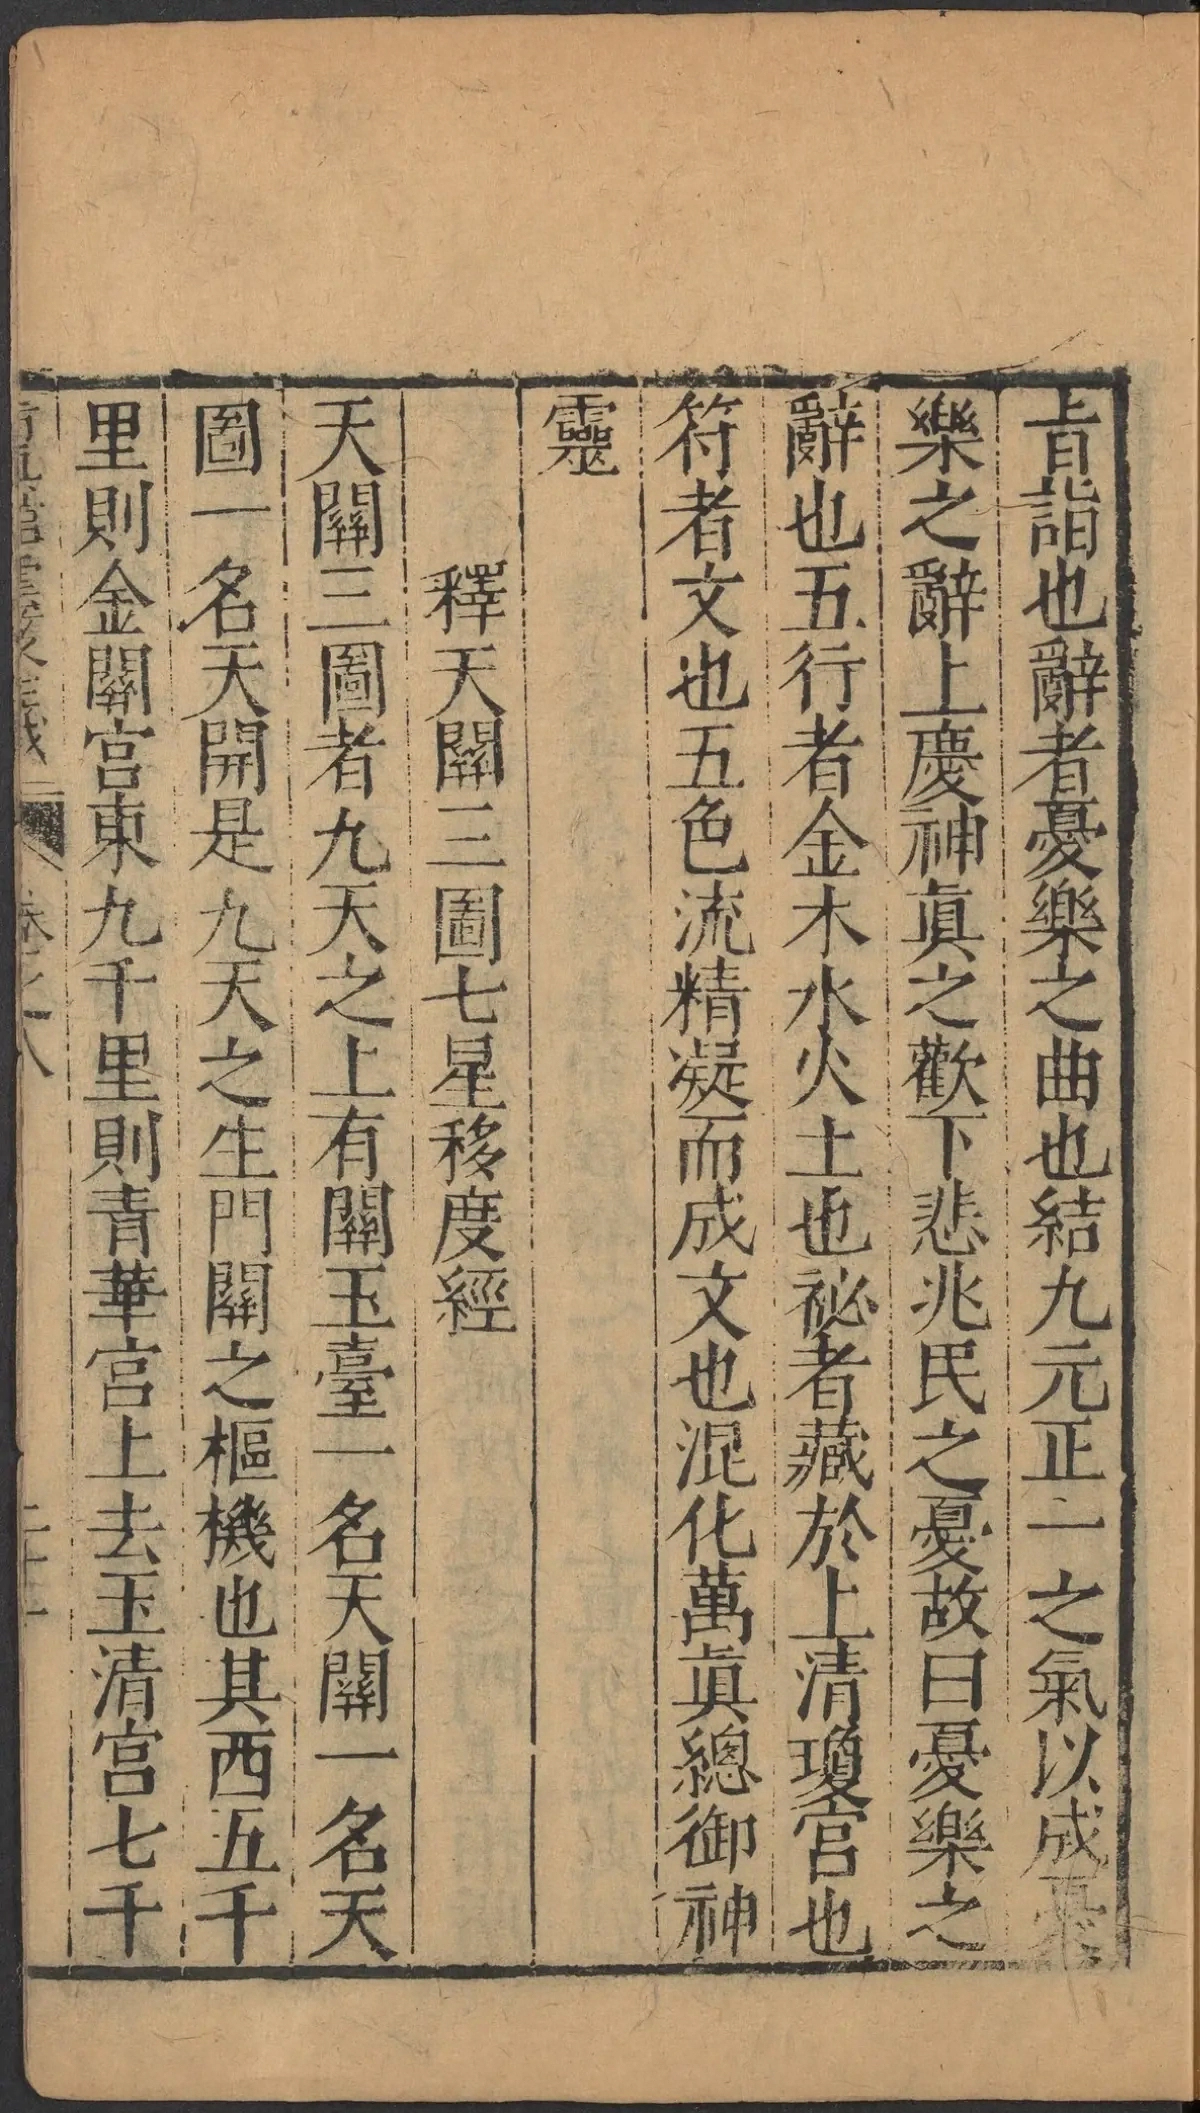 上旨詣也辭者憂樂之曲也結九元正一之氣以成憂
樂之辭上慶神眞之歡下悲兆民之憂故曰憂樂之
辭也五行者金木水火土也祕者藏於上清瓊宮也
符者文也五色流精凝而成文也混化萬眞總御神
靈
釋天關三圖七星移度經
天關三圖者九天之上有關玉臺一名天關一名天
圖一名天開是九天之生門關之樞機也其西五千
里則金關宮東九千里則青華宮上去玉清宮七千
卷之八
二十一